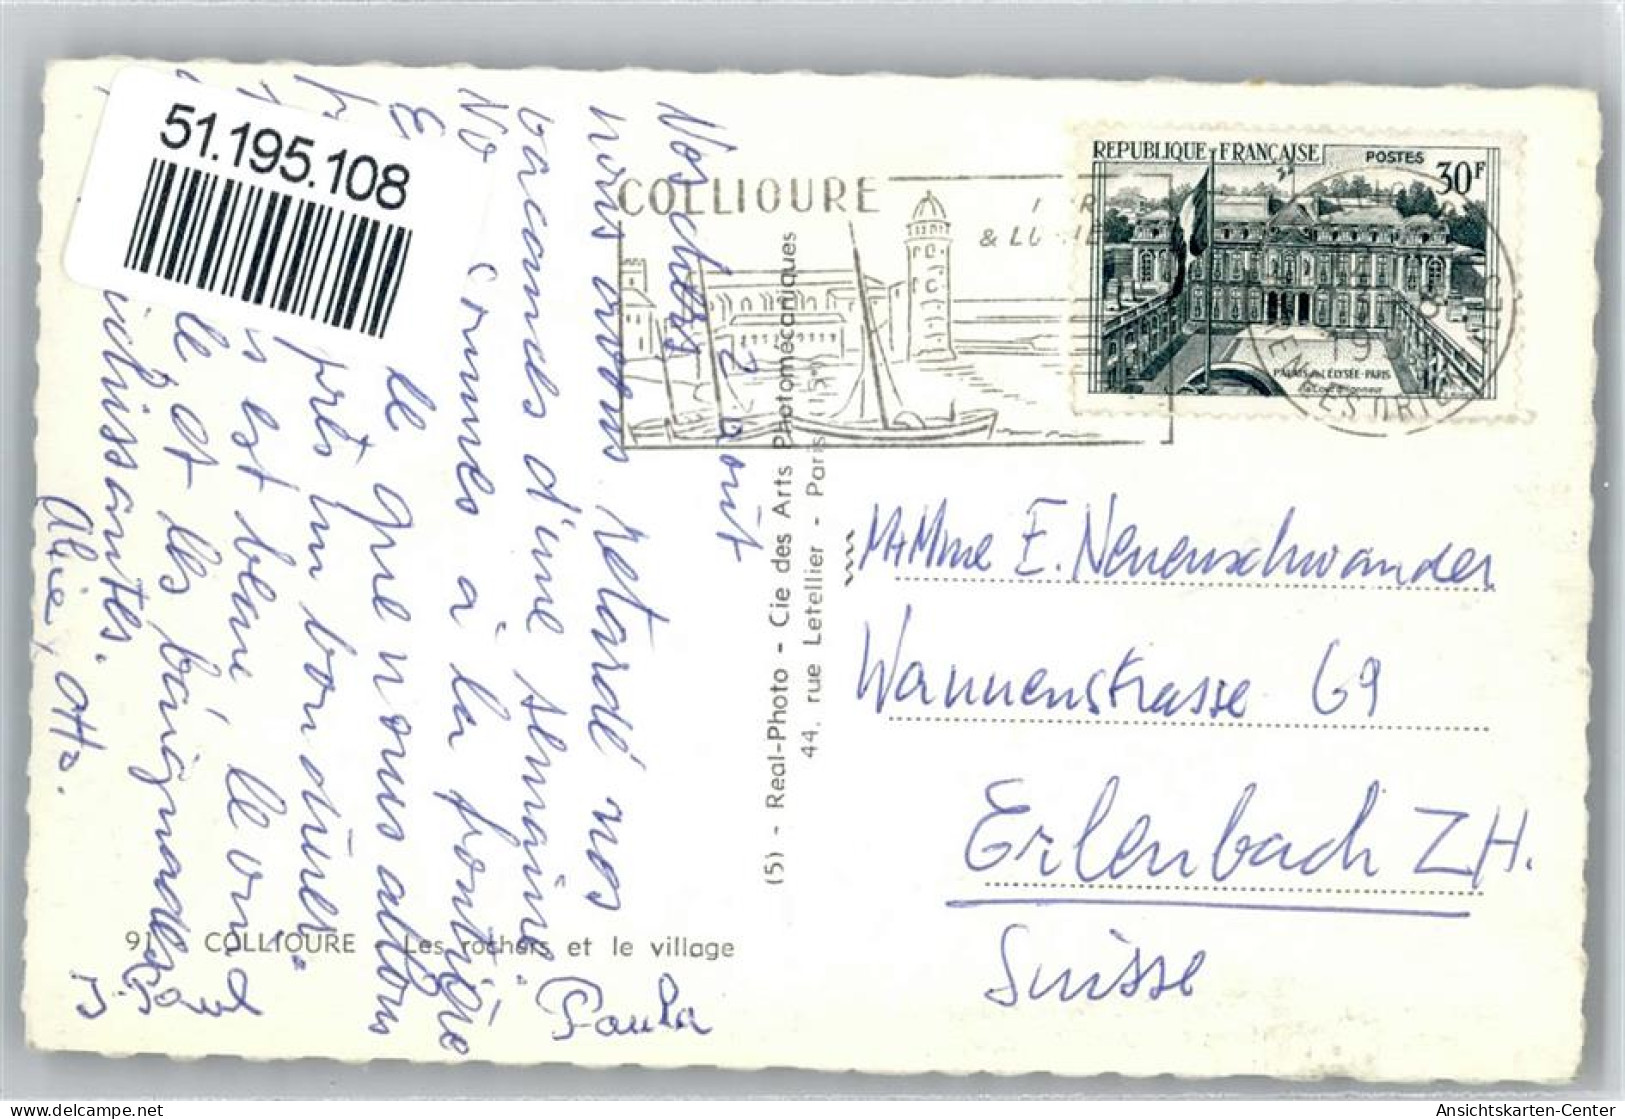 51.195.108
COLLIOURE
REPUBLIQUE FRANÇAISE
POSTES
30F
PALAIS DE L'ÉLYSÉE-PARIS
19
Nos chers
2 Août
nous avons retardé nos
vacances d'une semaine.
No
sommes à la frontière
E
le que nous allons
près un bon dîner.
s est beau, le vend
le et les baignades
Alice, Otto.
Paula
(5) - Real-Photo - Cie des Arts Photomécaniques
44, rue Letellier - Paris (15e)
91 COLLIOURE - Les rochers et le village
M+Mme E. Neuenschwander
Wannenstrasse 69
Erlenbach ZH.
Suisse
Ansichtskarten-Center